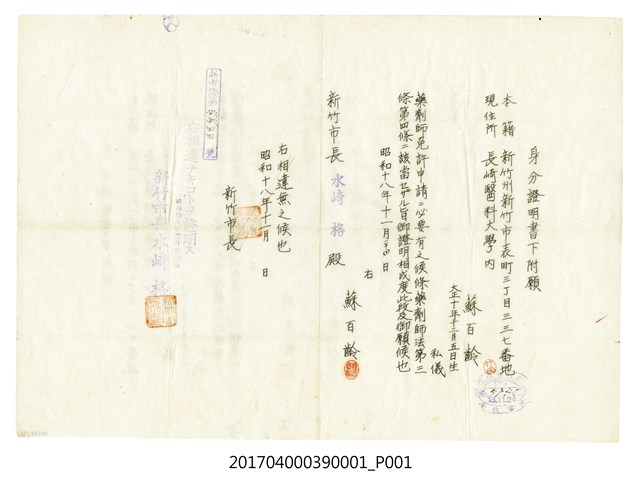 身分證明書下附願
本籍 新竹州新竹市表町三丁目三三七番地
現住所 長崎醫科大學內
蘇百齡
大正十年十二月五日生
私儀
藥劑師免許申請ニ必要有之候條藥劑師法第三
條第四條ニ該當セザル旨御證明相成度此段及御願候也
昭和十八年十一月 日
右
蘇百齡
新竹市長 水崎格 殿
右相違無之候也
昭和十八年十一月 日
新竹市長
新竹市長 水崎格
201704000390001_P001